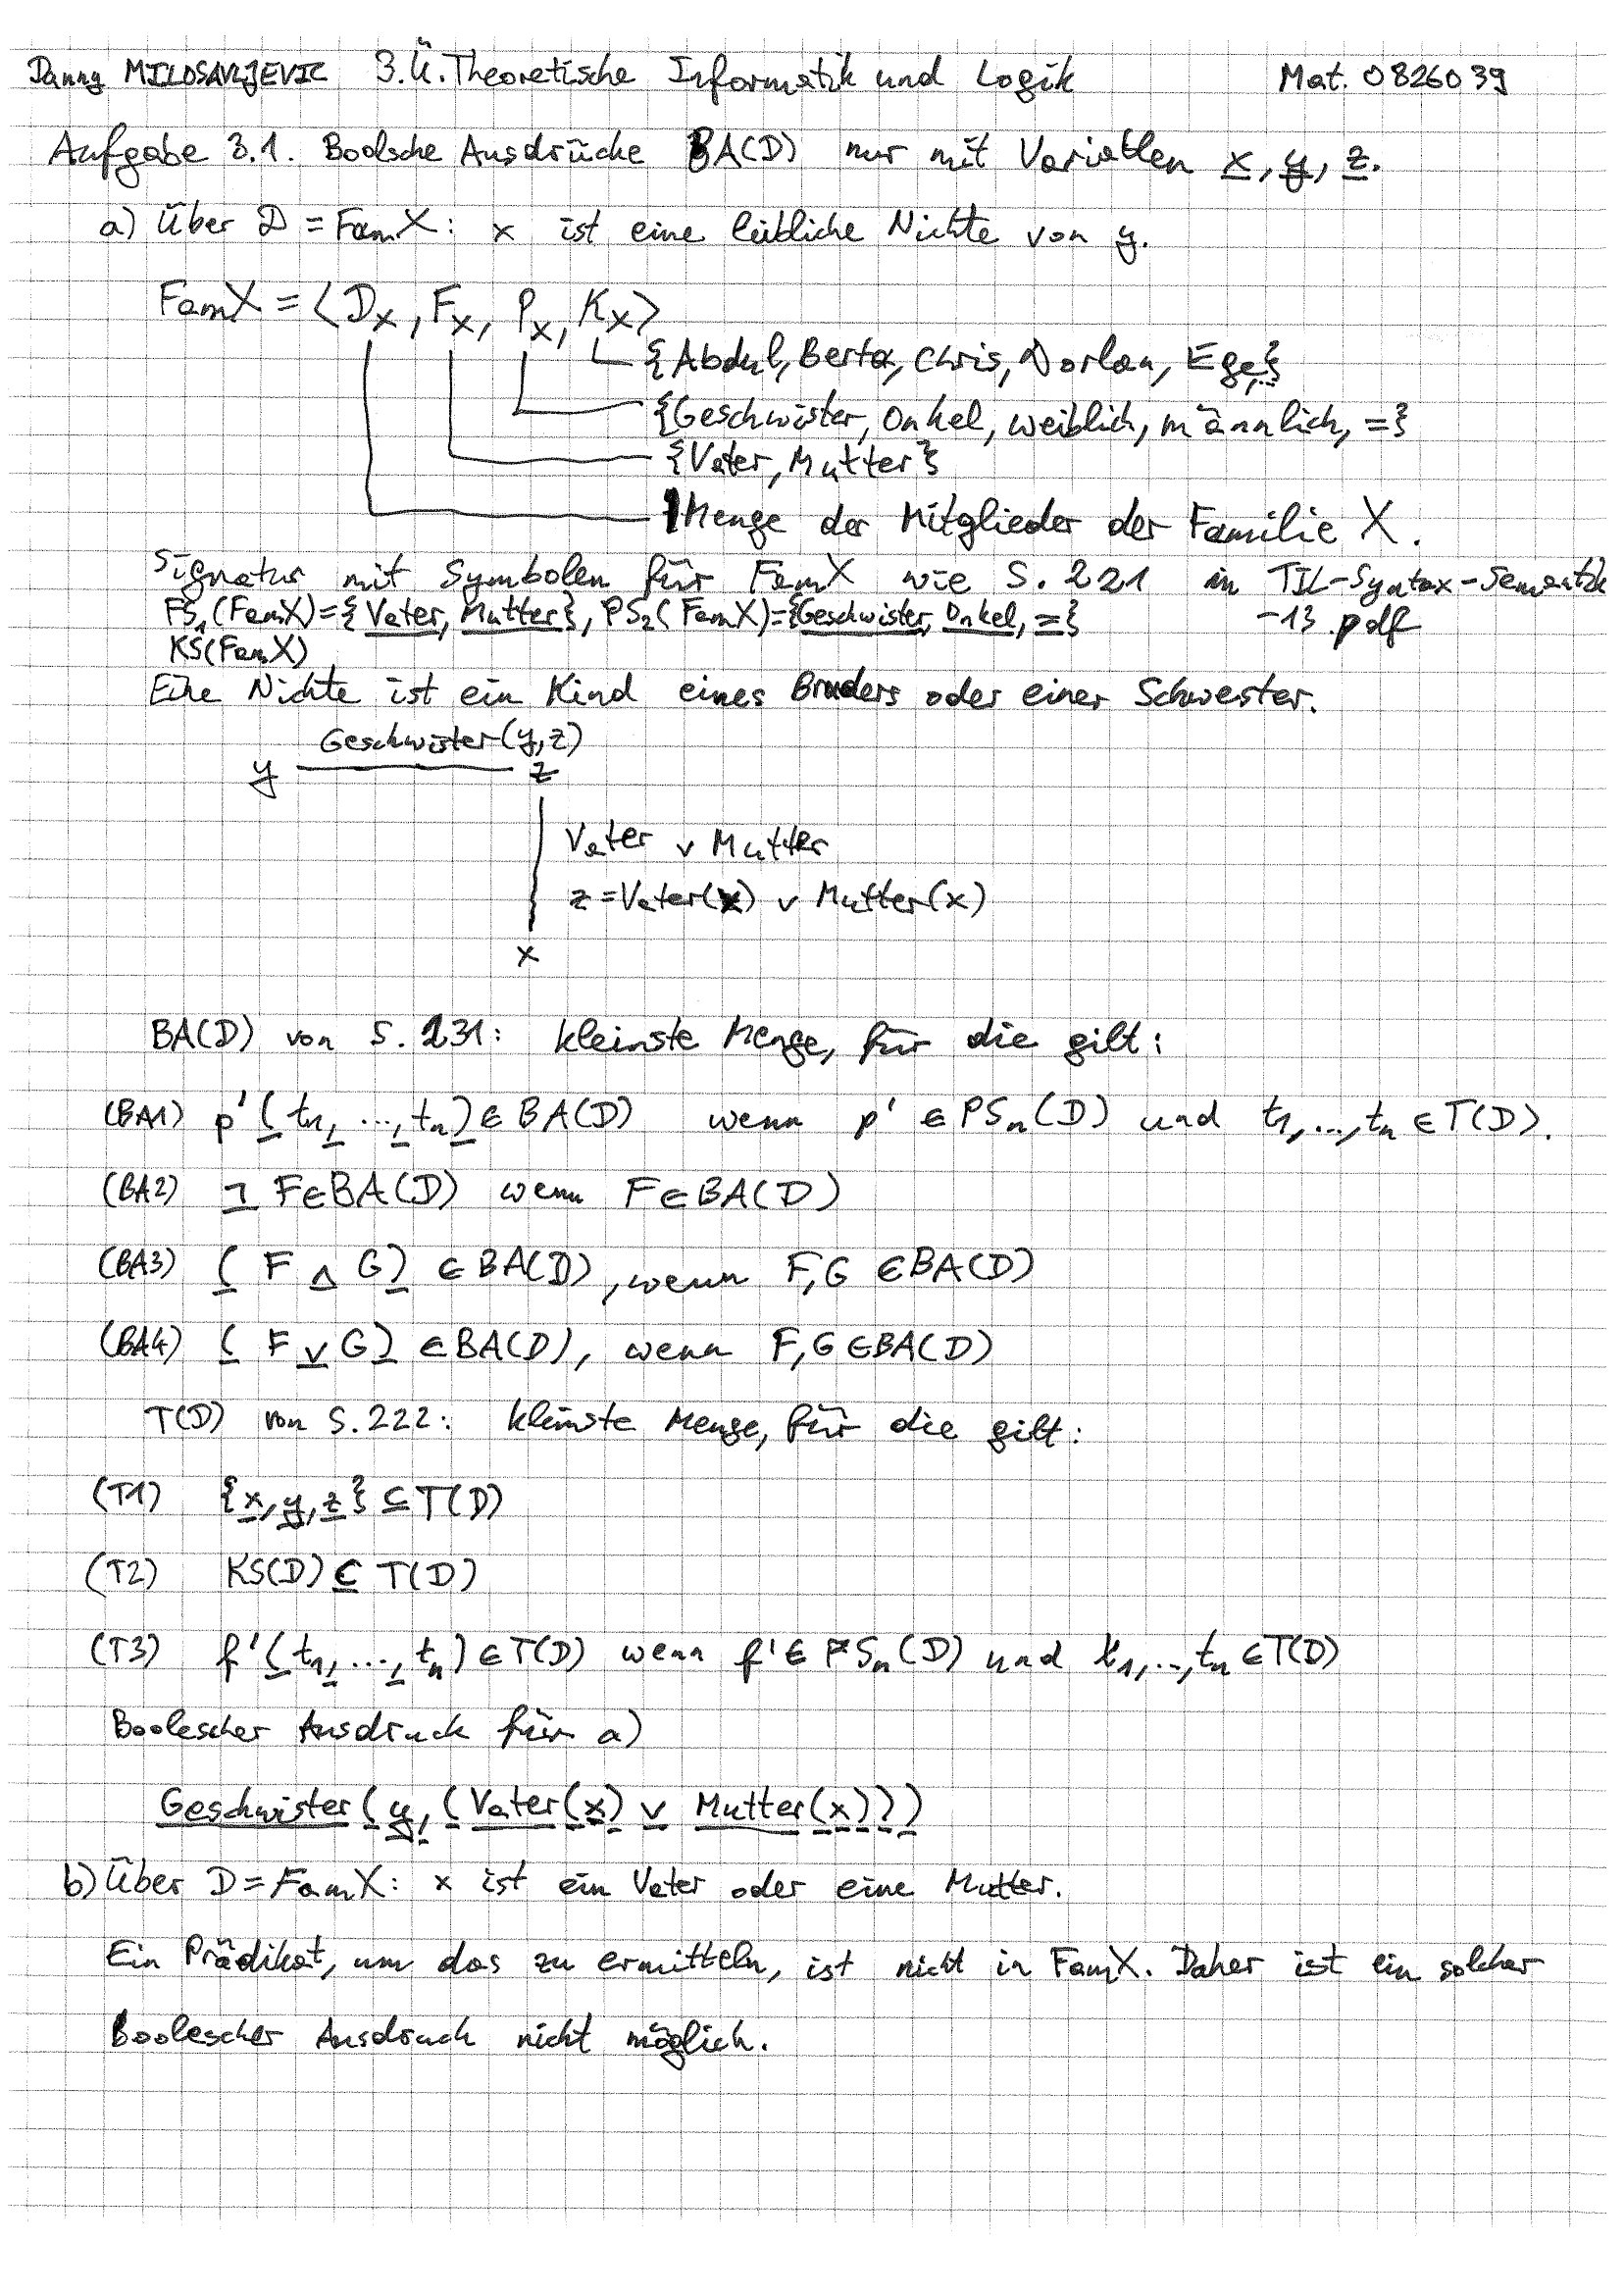 Danny MILOSAVLJEVIC 3.Ü. Theoretische Informatik und Logik Mat. 0826039
Aufgabe 3.1. Boolsche Ausdrücke BA(D) nur mit Variablen x, y, z.
a) Über D = FamX: x ist eine leibliche Nichte von y.
FamX = ⟨D_X, F_X, P_X, K_X⟩
{Abdul, Berta, Chris, Dorlan, Ege,...}
{Geschwister, Onkel, weiblich, männlich, =}
{Vater, Mutter}
Menge der Mitglieder der Familie X.
Signatur mit Symbolen für FamX wie S. 221 in TIL-Syntax-Semantik
FS₁(FamX)={Vater, Mutter}, PS₂(FamX)={Geschwister, Onkel, =} -13.pdf
KS(FamX)
Eine Nichte ist ein Kind eines Bruders oder einer Schwester.
Geschwister(y,z)
y z
Vater ∨ Mutter
z = Vater(x) ∨ Mutter(x)
x
BA(D) von S. 231: kleinste Menge, für die gilt:
(BA1) p'(t₁, ..., tₙ) ∈ BA(D) wenn p' ∈ PSₙ(D) und t₁,...,tₙ ∈ T(D).
(BA2) ¬ F ∈ BA(D) wenn F ∈ BA(D)
(BA3) ( F ∧ G ) ∈ BA(D), wenn F, G ∈ BA(D)
(BA4) ( F ∨ G ) ∈ BA(D), wenn F, G ∈ BA(D)
T(D) von S. 222: kleinste Menge, für die gilt:
(T1) {x, y, z} ⊆ T(D)
(T2) KS(D) ⊆ T(D)
(T3) f'(t₁, ..., tₙ) ∈ T(D) wenn f' ∈ FSₙ(D) und t₁,...,tₙ ∈ T(D)
Boolescher Ausdruck für a)
Geschwister(y, (Vater(x) ∨ Mutter(x)))
b) Über D = FamX: x ist ein Vater oder eine Mutter.
Ein Prädikat, um das zu ermitteln, ist nicht in FamX. Daher ist ein solcher
Boolescher Ausdruck nicht möglich.